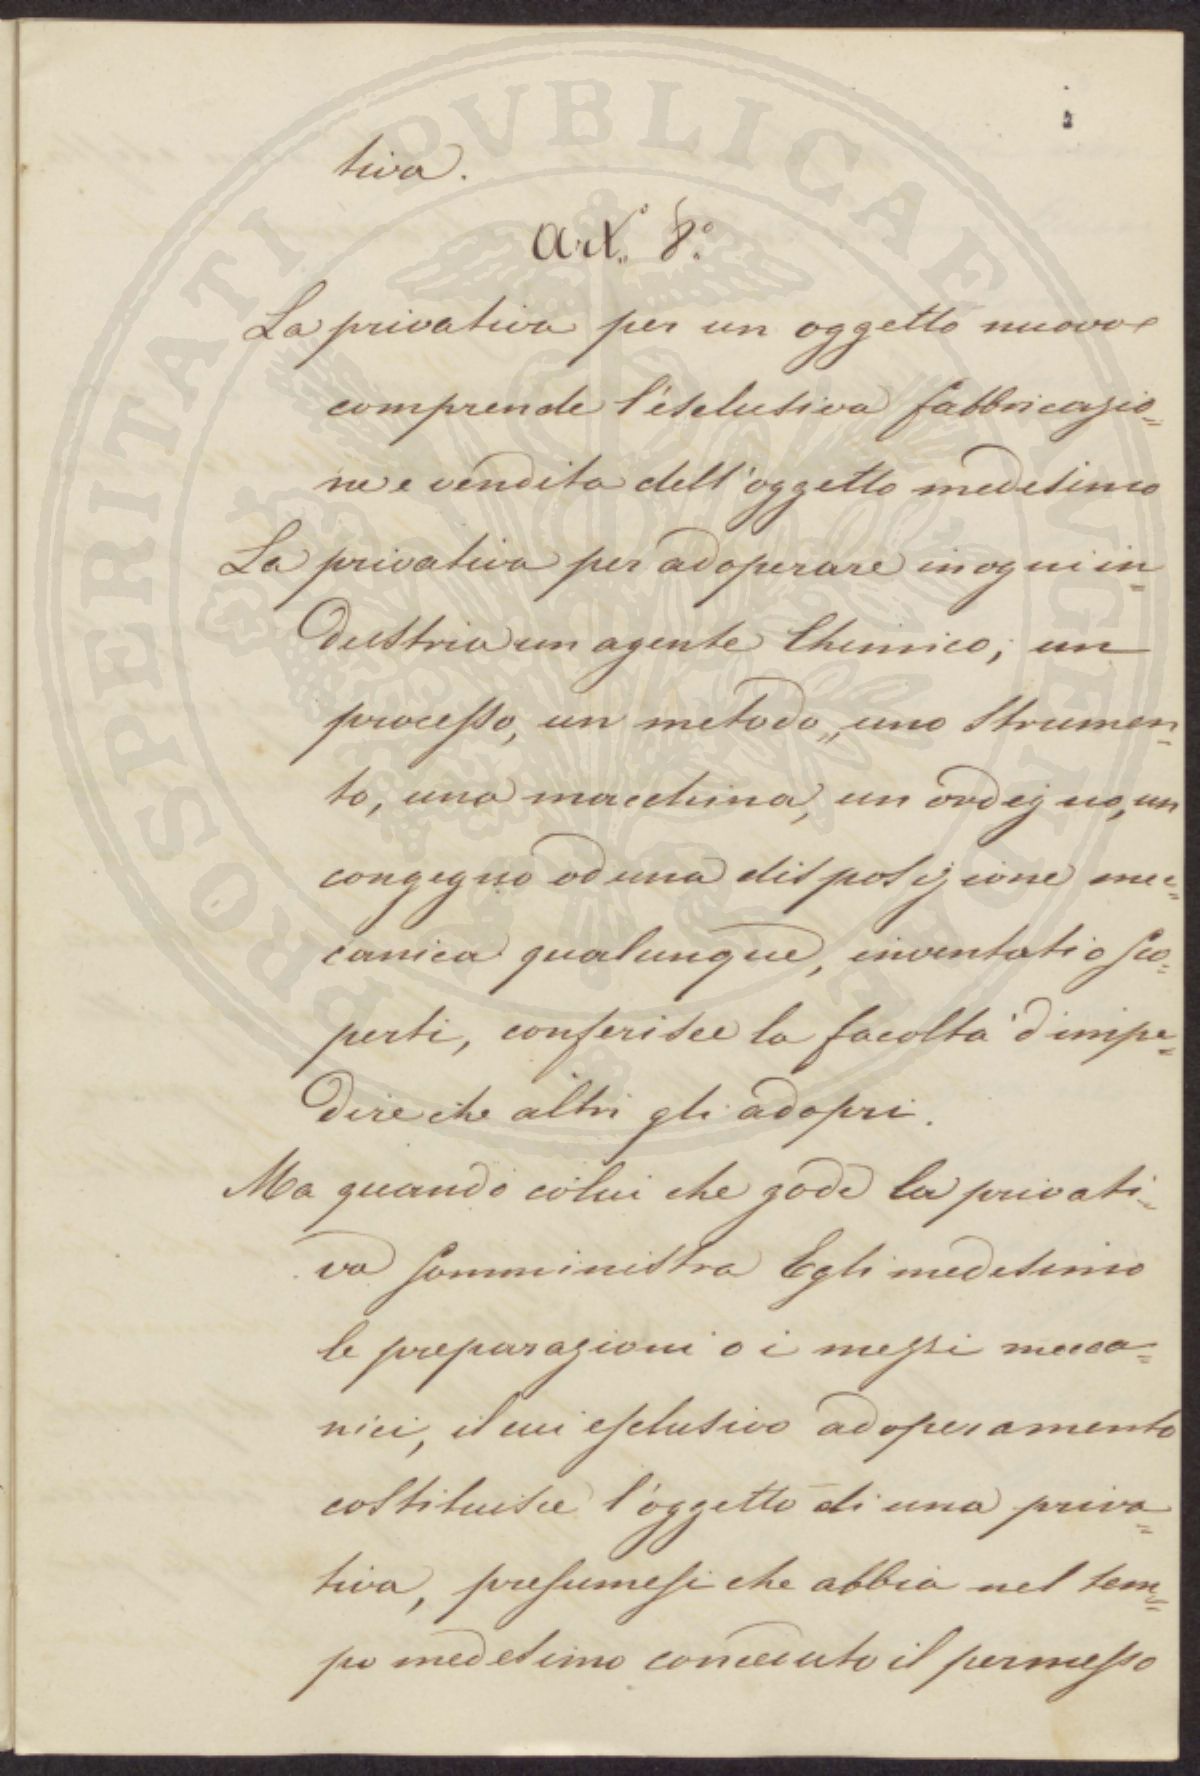 tiva.
Art.° 8°.
La privativa per un oggetto nuovo
comprende l'esclusiva fabbricazio=
ne e vendita dell'oggetto medesimo
La privativa per adoperare in ogni in=
dustria un agente Chimico, un
processo, un metodo, uno strumen=
to, una macchina, un ordegno, un
congegno od una disposizione mec=
canica qualunque, inventati o sco=
perti, conferisce la facoltà d'impe=
dire che altri gli adopri.
Ma quando colui che gode la privati=
va somministra Egli medesimo
le preparazioni o i mezzi mecca=
nici, il cui esclusivo adoperamento
costituisce l'oggetto di una priva=
tiva, presumesi che abbia nel tem=
po medesimo conceduto il permesso
PROSPERITATI PVBLICAE AVGENDAE